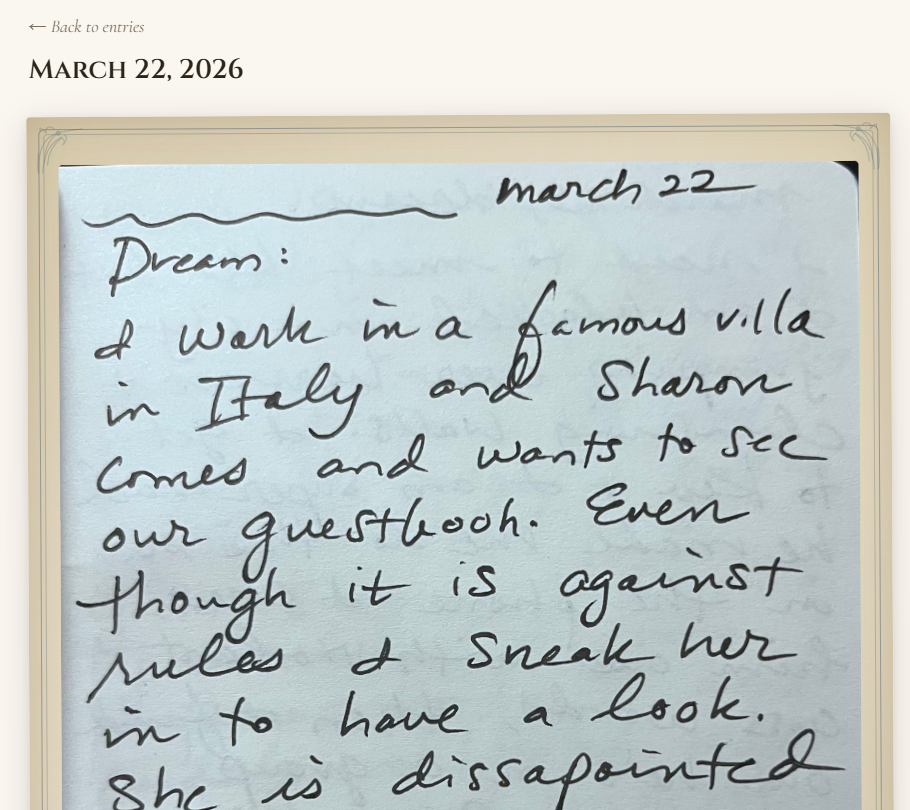 ← Back to entries
March 22, 2026
march 22
Dream:
I work in a famous villa
in Italy and Sharon
comes and wants to see
our guestbook. Even
though it is against
rules I sneak her
in to have a look.
She is dissapointed